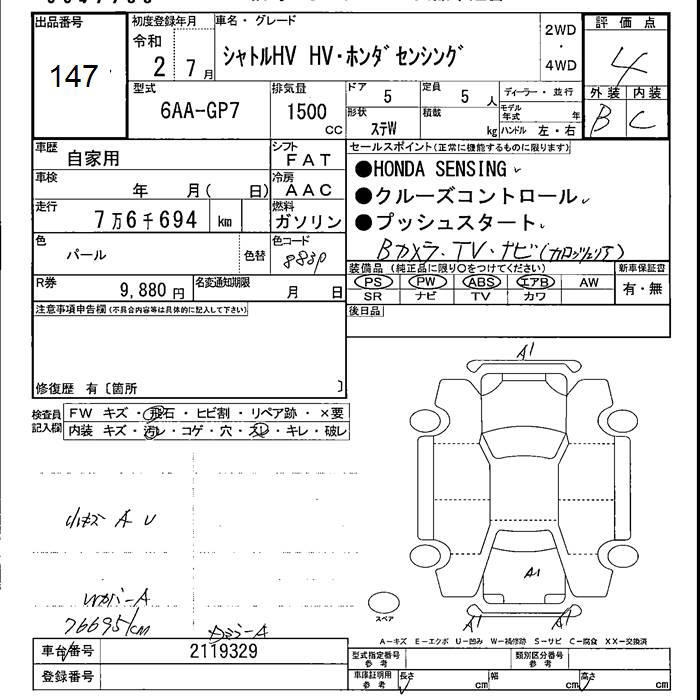 出品番号
147
初度登録年月
令和
2 7月
車名・グレード
シャトルHV HV・ホンダセンシング
2WD
・
4WD
評価点
4
外装 内装
B C
型式
6AA-GP7
排気量
1500
cc
ドア
5
定員
5 人
ディーラー・並行
形状
ステW
積載
kg
モデル年式 年
ハンドル 左・右
車歴
自家用
シフト
FAT
車検
年 月( 日)
冷房
AAC
走行
7万6千694 km
燃料
ガソリン
色
パール
色替
色コード
883P
セールスポイント(正常に機能するものに限ります)
●HONDA SENSING
●クルーズコントロール
●プッシュスタート
Bカメラ・TV・ナビ(カロッツェリア)
R券
9,880 円
名変通知期限
月 日
装備品(純正品に限り○をつけてください)
PS PW ABS エアB AW
SR ナビ TV カワ
新車保証書
有・無
注意事項申告欄(不具合内容等は具体的に記入して下さい)
後日品
修復歴 有〔箇所 〕
検査員
記入欄
FW キズ・飛石・ヒビ割・リペア跡・×要
内装 キズ・汚レ・コゲ・穴・スレ・キレ・破レ
A1
小キズ A U
A1
Wカバー A
76695km
スペア
A1
A1
A-キズ E-エクボ U-凹み W-補修跡 S-サビ C-腐食 XX-交換済
車台番号
2119329
登録番号
型式指定番号
参考
類別区分番号
参考
車庫証明用
参考
長さ cm
幅 cm
高さ cm